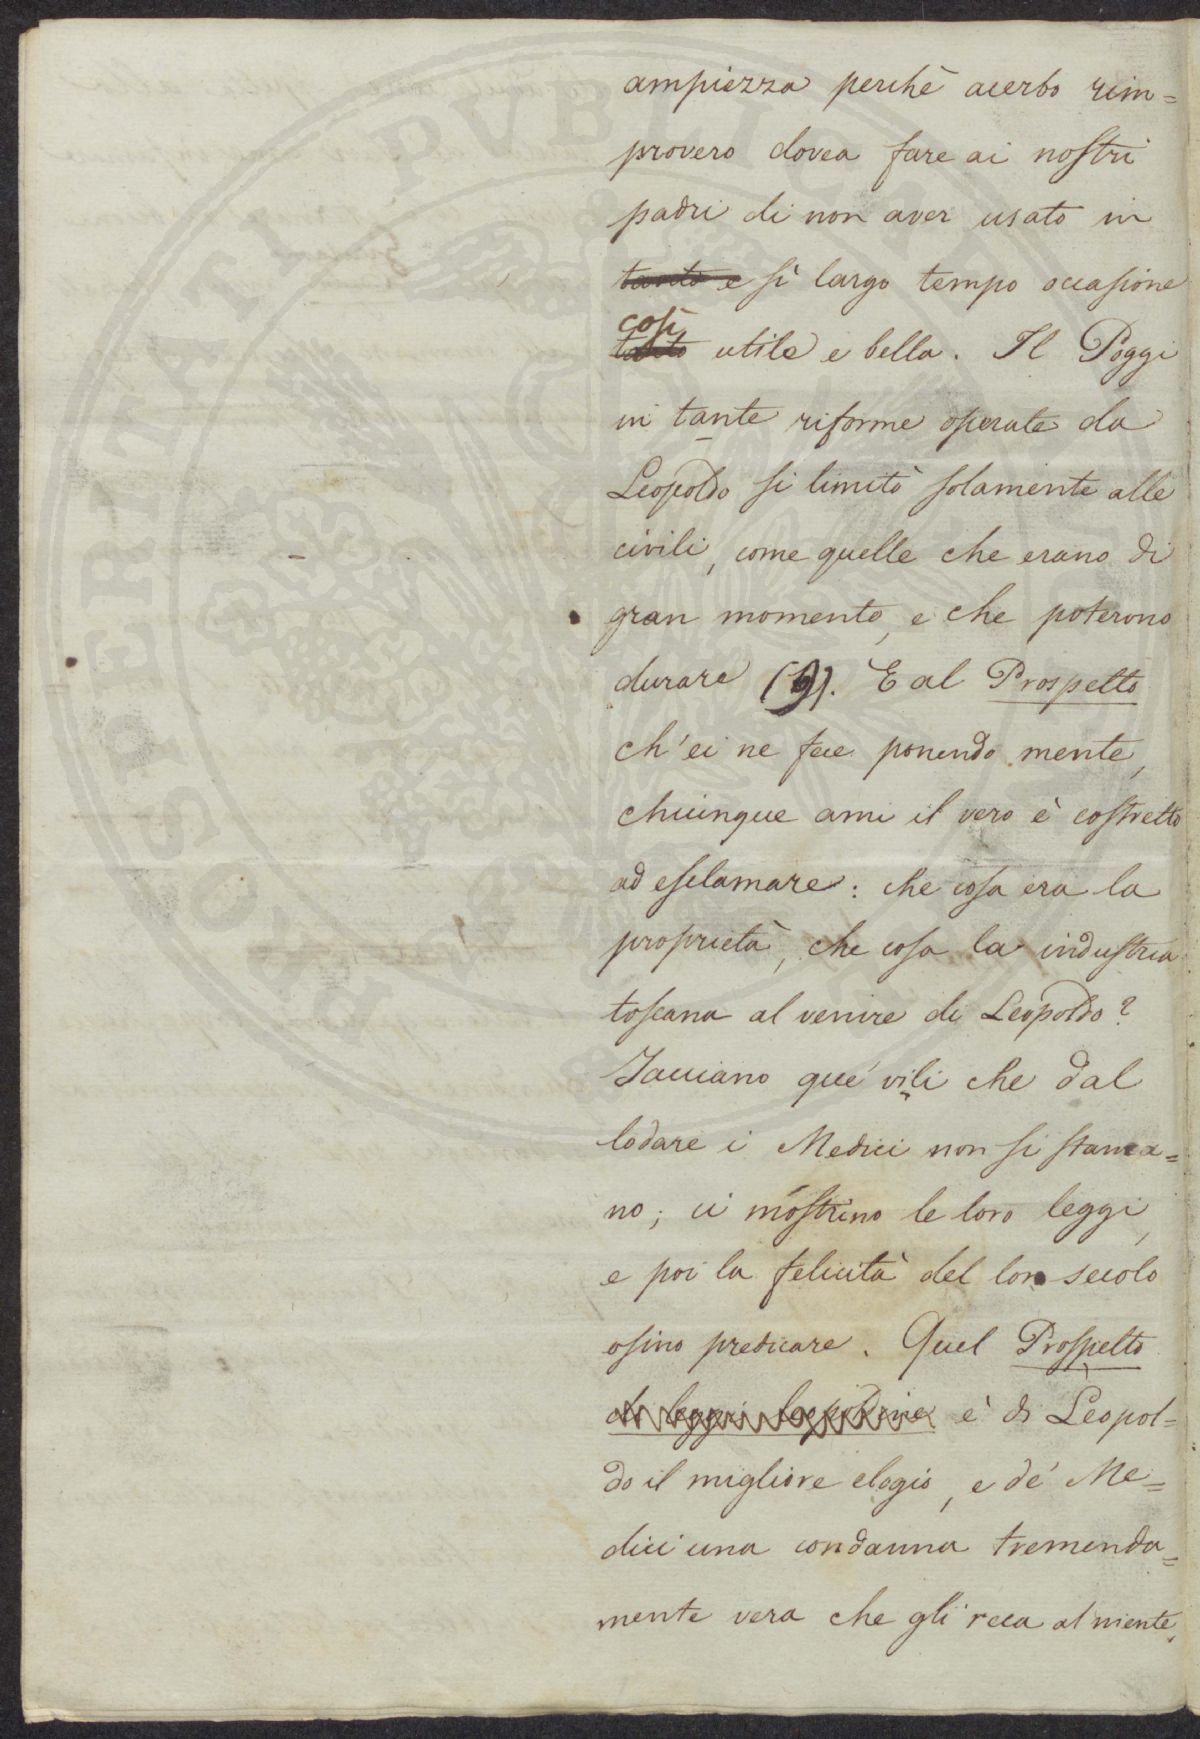 ampiezza perchè acerbo rim=
provero dovea fare ai nostri
padri di non aver usato in
tanto e sì largo tempo occasione
così
tanto utile e bella. Il Poggi
in tante riforme operate da
Leopoldo si limitò solamente alle
civili, come quelle che erano di
gran momento, e che poterono
durare (9). E al Prospetto
ch'ei ne fece ponendo mente,
chiunque ami il vero è costretto
ad esclamare: che cosa era la
proprietà, che cosa la industria
toscana al venire di Leopoldo?
Tacciano que' vili che dal
lodare i Medici non si stanca=
no; ci mostrino le loro leggi,
e poi la felicità del loro secolo
osino predicare. Quel Prospetto
di leggi leopoldine è di Leopol=
do il migliore elogio, e de' Me=
dici una condanna tremenda=
mente vera che gli reca al niente.